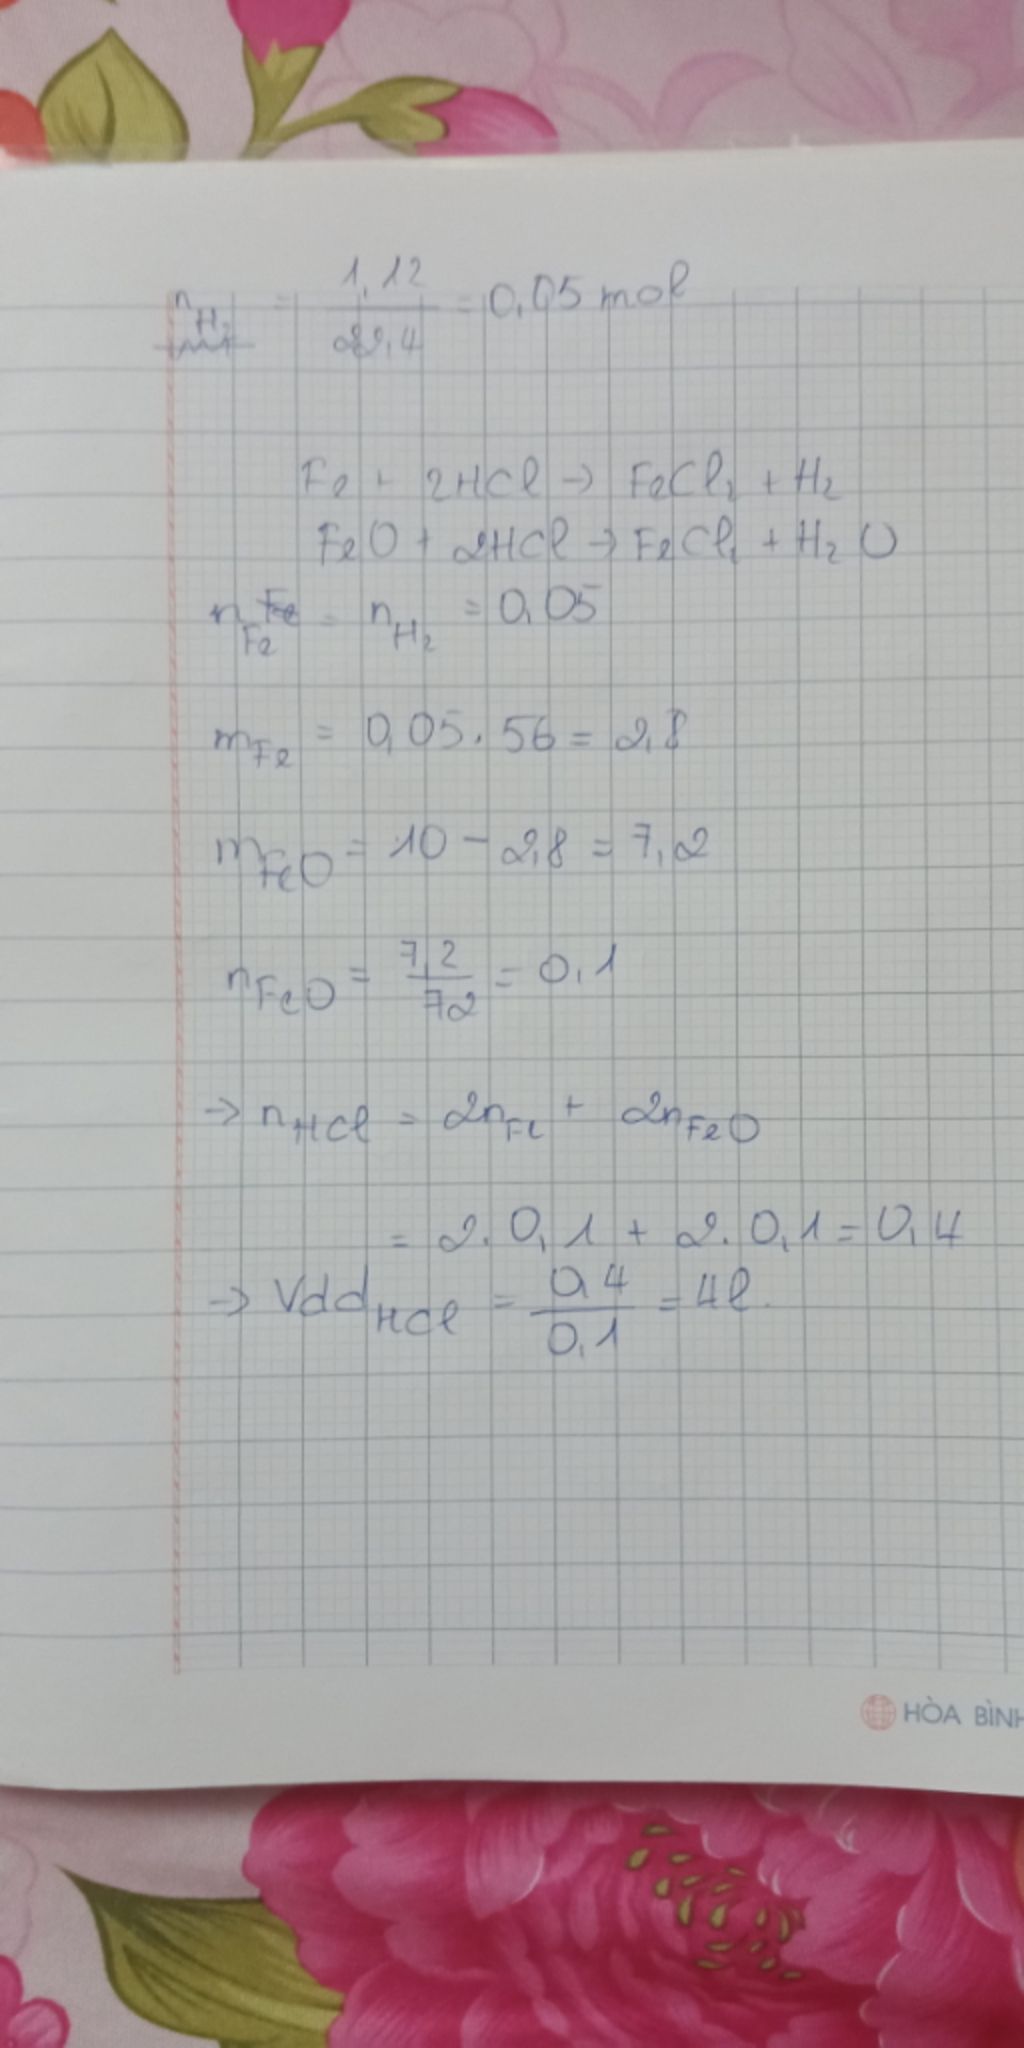 nH₂ = 1,12 / 22,4 = 0,05 mol
Fe + 2HCl → FeCl₂ + H₂
FeO + 2HCl → FeCl₂ + H₂O
nFe = nH₂ = 0,05
mFe = 0,05 . 56 = 2,8
mFeO = 10 - 2,8 = 7,2
nFeO = 7,2 / 72 = 0,1
→ nHCl = 2nFe + 2nFeO
= 2. 0,1 + 2. 0,1 = 0,4
→ VddHCl = 0,4 / 0,1 = 4l.
HÒA BÌNH